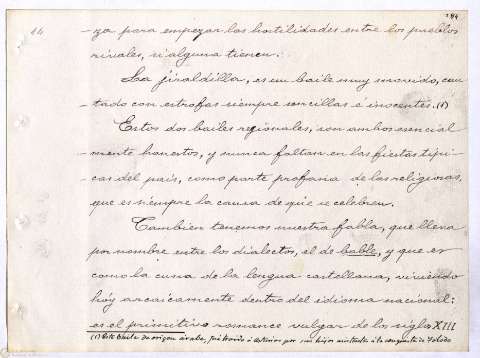 14
194
- za para empezar las hostilidades entre los pueblos
rivales, si alguna tienen.
La jiraldilla, es un baile muy movido, can-
tado con estrofas siempre sencillas é inocentes. (1)
Estos dos bailes regionales, son ambos esencial
- mente honestos, y nunca faltan en las fiestas tipi-
- cas del país, como parte profana de las religiosas,
que es siempre la causa de que se celebren.
Tambien tenemos nuestra fabla, que lleva
por nombre entre los dialectos, el de bable, y que es
como la cuna de la lengua castellana, viviendo
hoy arcaicamente dentro del idioma nacional;
es el primitivo romance vulgar de los siglos XIII
(1) Este baile de origen árabe, fué traido á Asturias por sus hijos asistente á la conquista de Toledo